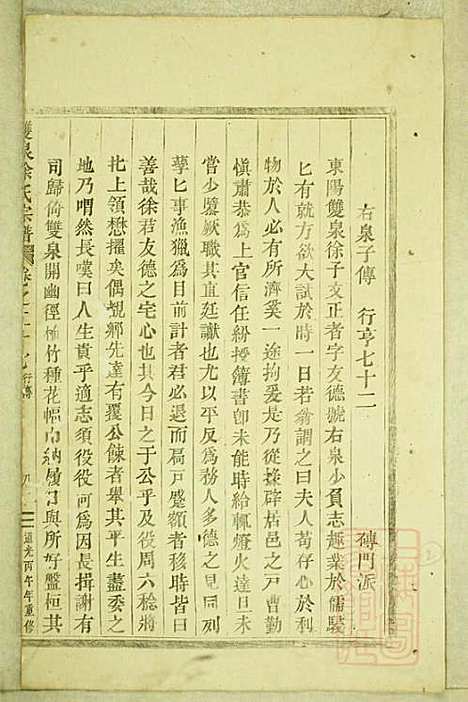 右泉子傳　行亨七十二　磚門派
東陽雙泉徐子文正者字友德號右泉少負志趣業於儒駸
匕有就方欲大試於時一日若翁謂之曰夫人苟存心於利
物於人必有所濟奚一途拘爰是乃從掾辟居邑之戸曹勤
愼肅恭為上官信任紛授簿書卽未能時給輒燈火達旦未
嘗少隳厥職其直廷讞也尤以平反爲務人多德之見同列
孳匕事漁獵爲目前計者君必退而扃戸蹙額者移時皆曰
善哉徐君友德之宅心也其今日之于公乎及役周六稔將
北上領懋擢矣偶覩鄉先達有覆公餗者舉其平生盡委之
地乃喟然長嘆曰人生貴乎適志須役役何為因長揖謝有
司歸倚雙泉開幽徑植竹種花幅巾納履日與所好盤桓其
雙泉徐氏宗譜　卷之二十七　行傳　道光丙午年重修